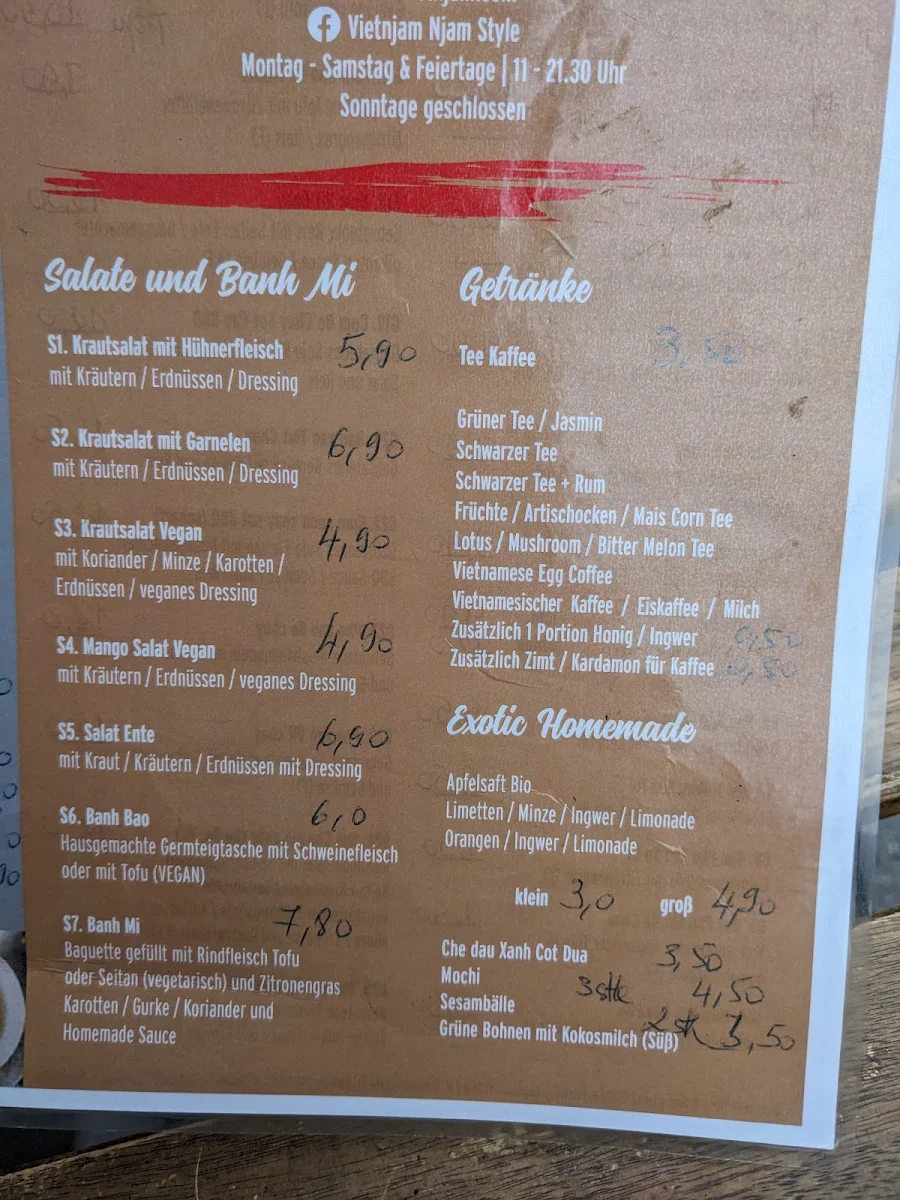 Vietnjam Njam Style
Montag - Samstag & Feiertage | 11 - 21.30 Uhr
Sonntage geschlossen
Salate und Banh Mi
S1. Krautsalat mit Hühnerfleisch 5,90
mit Kräutern / Erdnüssen / Dressing
S2. Krautsalat mit Garnelen 6,90
mit Kräutern / Erdnüssen / Dressing
S3. Krautsalat Vegan 4,90
mit Koriander / Minze / Karotten /
Erdnüssen / veganes Dressing
S4. Mango Salat Vegan 4,90
mit Kräutern / Erdnüssen / veganes Dressing
S5. Salat Ente 6,90
mit Kraut / Kräutern / Erdnüssen mit Dressing
S6. Banh Bao 6,0
Hausgemachte Germteigtasche mit Schweinefleisch
oder mit Tofu (VEGAN)
S7. Banh Mi 7,80
Baguette gefüllt mit Rindfleisch Tofu
oder Seitan (vegetarisch) und Zitronengras
Karotten / Gurke / Koriander und
Homemade Sauce
Getränke
Tee Kaffee 3,50
Grüner Tee / Jasmin
Schwarzer Tee
Schwarzer Tee + Rum
Früchte / Artischocken / Mais Corn Tee
Lotus / Mushroom / Bitter Melon Tee
Vietnamese Egg Coffee
Vietnamesischer Kaffee / Eiskaffee / Milch
Zusätzlich 1 Portion Honig / Ingwer 0,50
Zusätzlich Zimt / Kardamon für Kaffee 0,50
Exotic Homemade
Apfelsaft Bio
Limetten / Minze / Ingwer / Limonade
Orangen / Ingwer / Limonade
klein 3,0 groß 4,90
Che dau Xanh Cot Dua 3,50
Mochi 3 stk 4,50
Sesambälle 2 stk 3,50
Grüne Bohnen mit Kokosmilch (Süß)